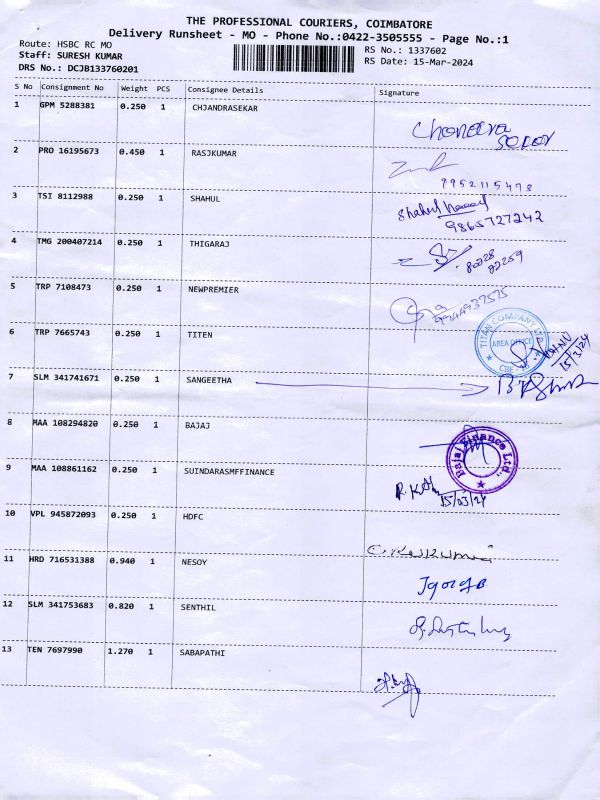 THE PROFESSIONAL COURIERS, COIMBATORE
Delivery Runsheet - MO - Phone No.:0422-3505555 - Page No.:1
Route: HSBC RC MO RS No.: 1337602
Staff: SURESH KUMAR RS Date: 15-Mar-2024
DRS No.: DCJB133760201
S No Consignment No Weight PCS Consignee Details Signature
1 GPM 5288381 0.250 1 CHJANDRASEKAR
2 PRO 16195673 0.450 1 RASJKUMAR
9952115478
3 TSI 8112988 0.250 1 SHAHUL
Shahul
9865727242
4 TMG 200407214 0.250 1 THIGARAJ
80228
22259
5 TRP 7108473 0.250 1 NEWPREMIER
6 TRP 7665743 0.250 1 TITEN
TITAN COMPANY LTD.
AREA OFFICE
CBE
15/3/24
7 SLM 341741671 0.250 1 SANGEETHA
8 MAA 108294820 0.250 1 BAJAJ
Bajaj Finance Ltd.,
9 MAA 108861162 0.250 1 SUINDARASMFFINANCE
15/03/24
10 VPL 945872093 0.250 1 HDFC
11 HRD 716531388 0.940 1 NESOY
12 SLM 341753683 0.820 1 SENTHIL
13 TEN 7697990 1.270 1 SABAPATHI